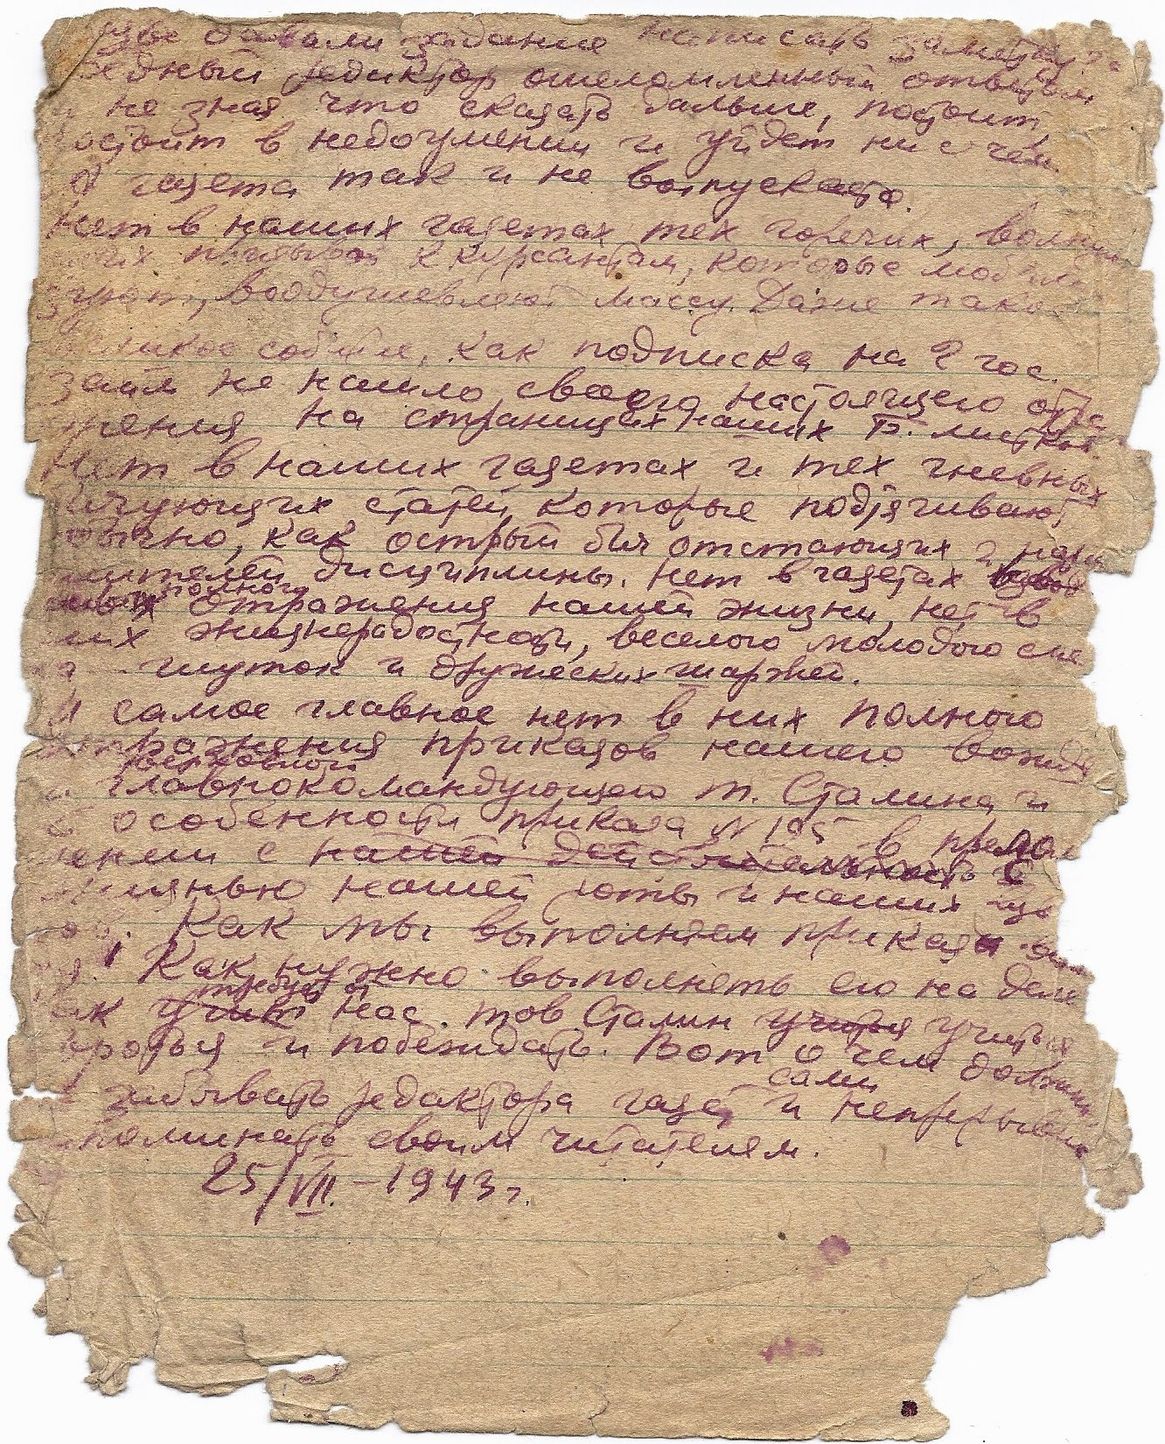 давали задание написать заметку
бедный редактор ошеломленный ответом
и не зная что сказать дальше, постоит,
постоит в недоумении и уйдет ни с чем
газета так и не выпускается.
Нет в наших газетах тех горячих,
призывов к курсантам, которые моби
зуют, воодушевляют массу. Даже такое
великое событие, как подписка на 2 гос.
заем не нашло своего настоящего отра
жения на страницах наших Б. листков.
Нет в наших газетах и тех гневных
бичующих статей, которые подтягивают
обычно, как острый бич отстающих и нару
шителей дисциплины. Нет в газетах
полного
отражения нашей жизни, нет в
них жизнерадостной, веселого молодого сме
ха шуток и дружеских шаржей.
И самое главное нет в них полного
отражения приказов нашего вождя
верховного
и главнокомандующего т. Сталина и
в особенности приказа № 195 в прелом
лении с нашей действительностью с
жизнью нашей роты и наших взв
одов. Как мы выполняем приказ
Как нужно выполнять его на деле
требует от
как учит нас тов Сталин учится учиться
бороться и побеждать. Вот о чем должны
сами
забывать редактора газет и непрерывно
напоминать своим читателям.
25/VII – 1943 г.